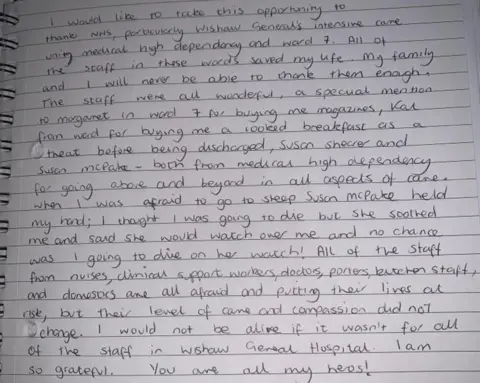 I would like to take this opportunity to
thank NHS, particularly Wishaw General's intensive care
unit, medical high dependency and ward 7. All of
the staff in these wards saved my life. My family
and I will never be able to thank them enogh.
The staff were all wonderful, a special mention
to margaret in ward 7 for buying me magazines, Kat
from ward for buying me a cooked breakfast as a
treat before being discharged, Susan shearer and
Susan McPake - both from medical high dependency
for going above and beyond in all aspects of care.
when I was afraid to go to sleep Susan McPake held
my hand; I thought I was going to die but she soothed
me and said she would watch over me and no chance
was I going to die on her watch! All of the staff
from nurses, clinical support workers, doctors, porters, kitchen staff,
and domestics are all afraid and putting their lives at
risk, but their level of care and compassion did not
change. I would not be alive if it wasn't for all
of the staff in Wishaw General Hospital. I am
so grateful. You are all my heros!